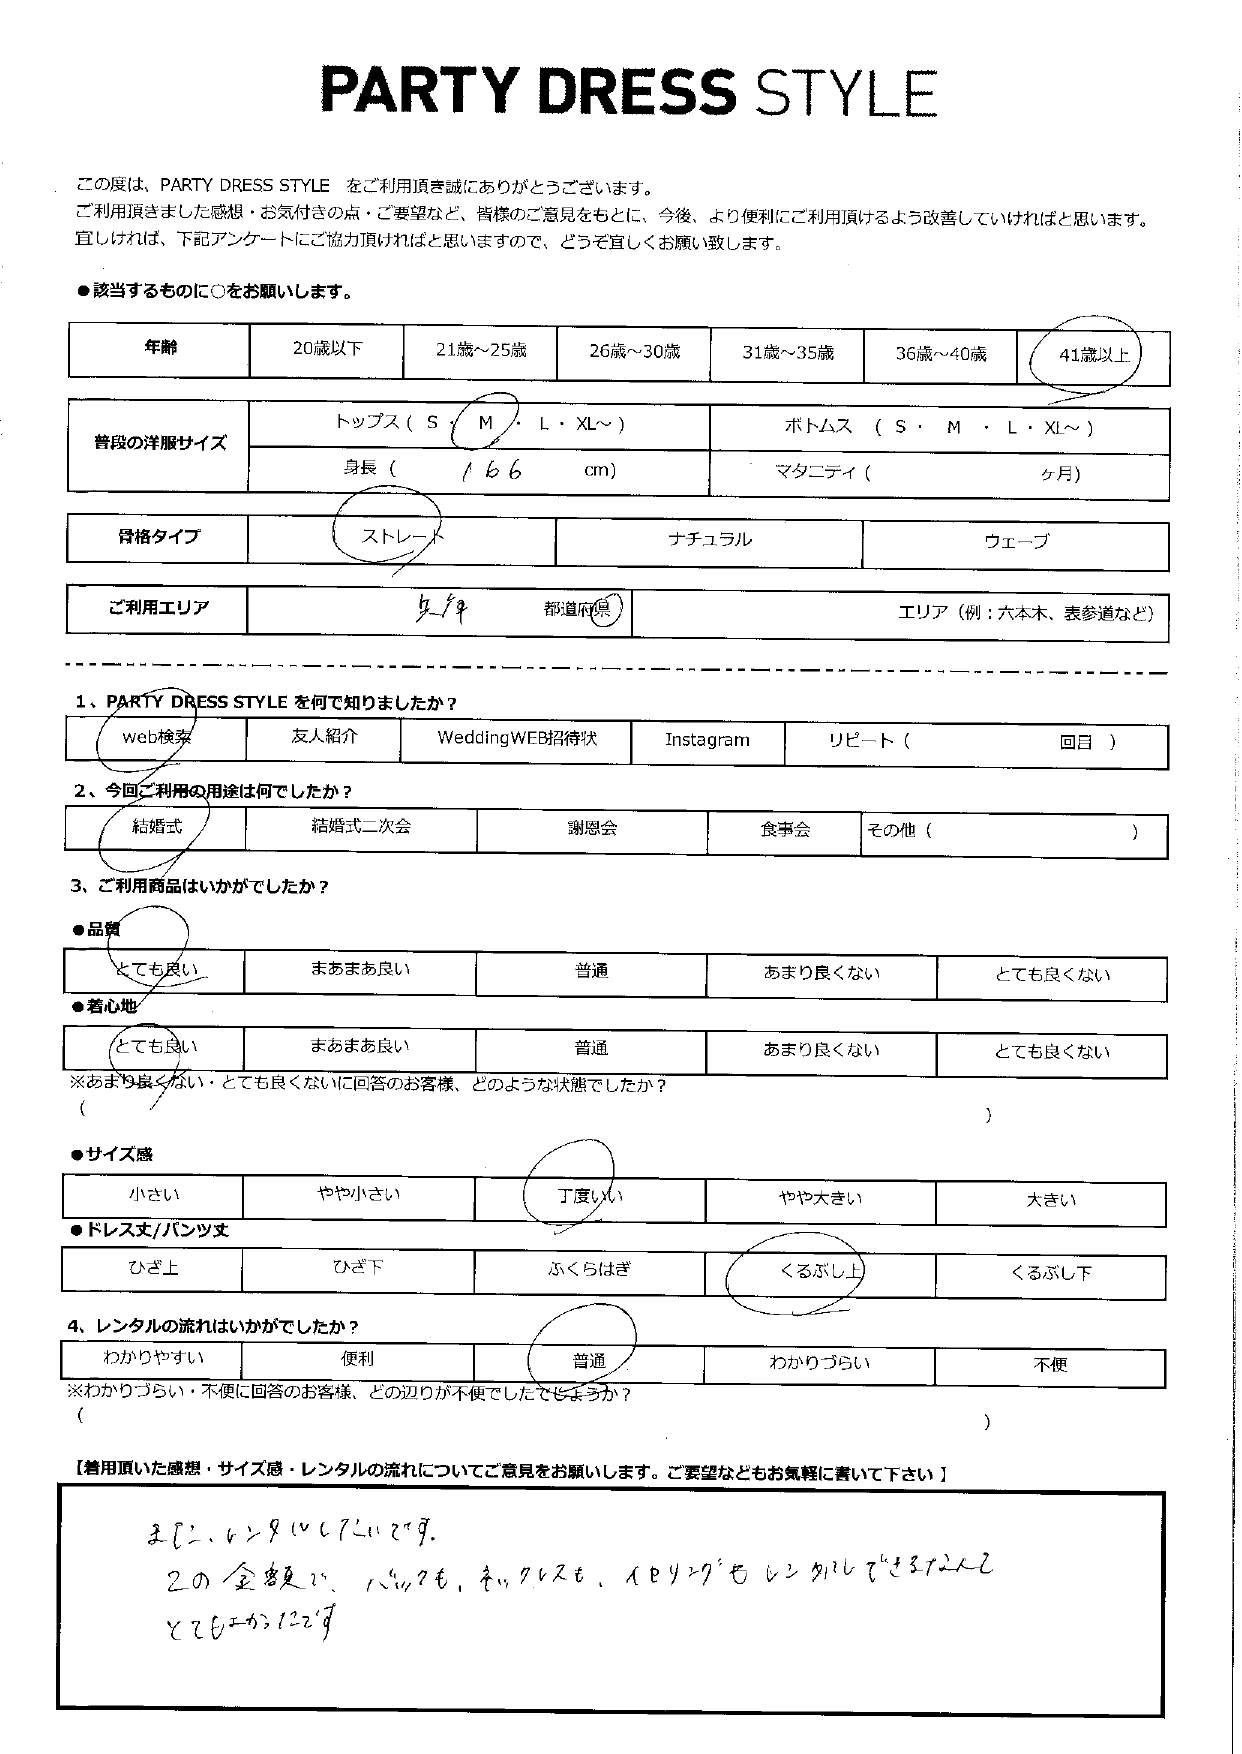 PARTY DRESS STYLE
この度は、PARTY DRESS STYLE をご利用頂き誠にありがとうございます。
ご利用頂きました感想・お気付きの点・ご要望など、皆様のご意見をもとに、今後、より便利にご利用頂けるよう改善していければと思います。
宜しければ、下記アンケートにご協力頂ければと思いますので、どうぞ宜しくお願い致します。
●該当するものに○をお願いします。
年齢 20歳以下 21歳～25歳 26歳～30歳 31歳～35歳 36歳～40歳 41歳以上
普段の洋服サイズ トップス ( S ・ M ・ L ・ XL～ ) ボトムス ( S ・ M ・ L ・ XL～ )
身長 ( 166 cm) マタニティ ( ヶ月)
骨格タイプ ストレート ナチュラル ウェーブ
ご利用エリア 都道府県 エリア（例：六本木、表参道など）
1、PARTY DRESS STYLE を何で知りましたか？
web検索 友人紹介 WeddingWEB招待状 Instagram リピート ( 回目 )
2、今回ご利用の用途は何でしたか？
結婚式 結婚式二次会 謝恩会 食事会 その他 ( )
3、ご利用商品はいかがでしたか？
●品質
とても良い まあまあ良い 普通 あまり良くない とても良くない
●着心地
とても良い まあまあ良い 普通 あまり良くない とても良くない
※あまり良くない・とても良くないに回答のお客様、どのような状態でしたか？
( )
●サイズ感
小さい やや小さい 丁度いい やや大きい 大きい
●ドレス丈/パンツ丈
ひざ上 ひざ下 ふくらはぎ くるぶし上 くるぶし下
4、レンタルの流れはいかがでしたか？
わかりやすい 便利 普通 わかりづらい 不便
※わかりづらい・不便に回答のお客様、どの辺りが不便でしたでしょうか？
( )
【着用頂いた感想・サイズ感・レンタルの流れについてご意見をお願いします。ご要望などもお気軽に書いて下さい】
また、レンタルしたいです。
この金額で、バックも、ネックレスも、イヤリングもレンタルできるなんて
とてもよかったです